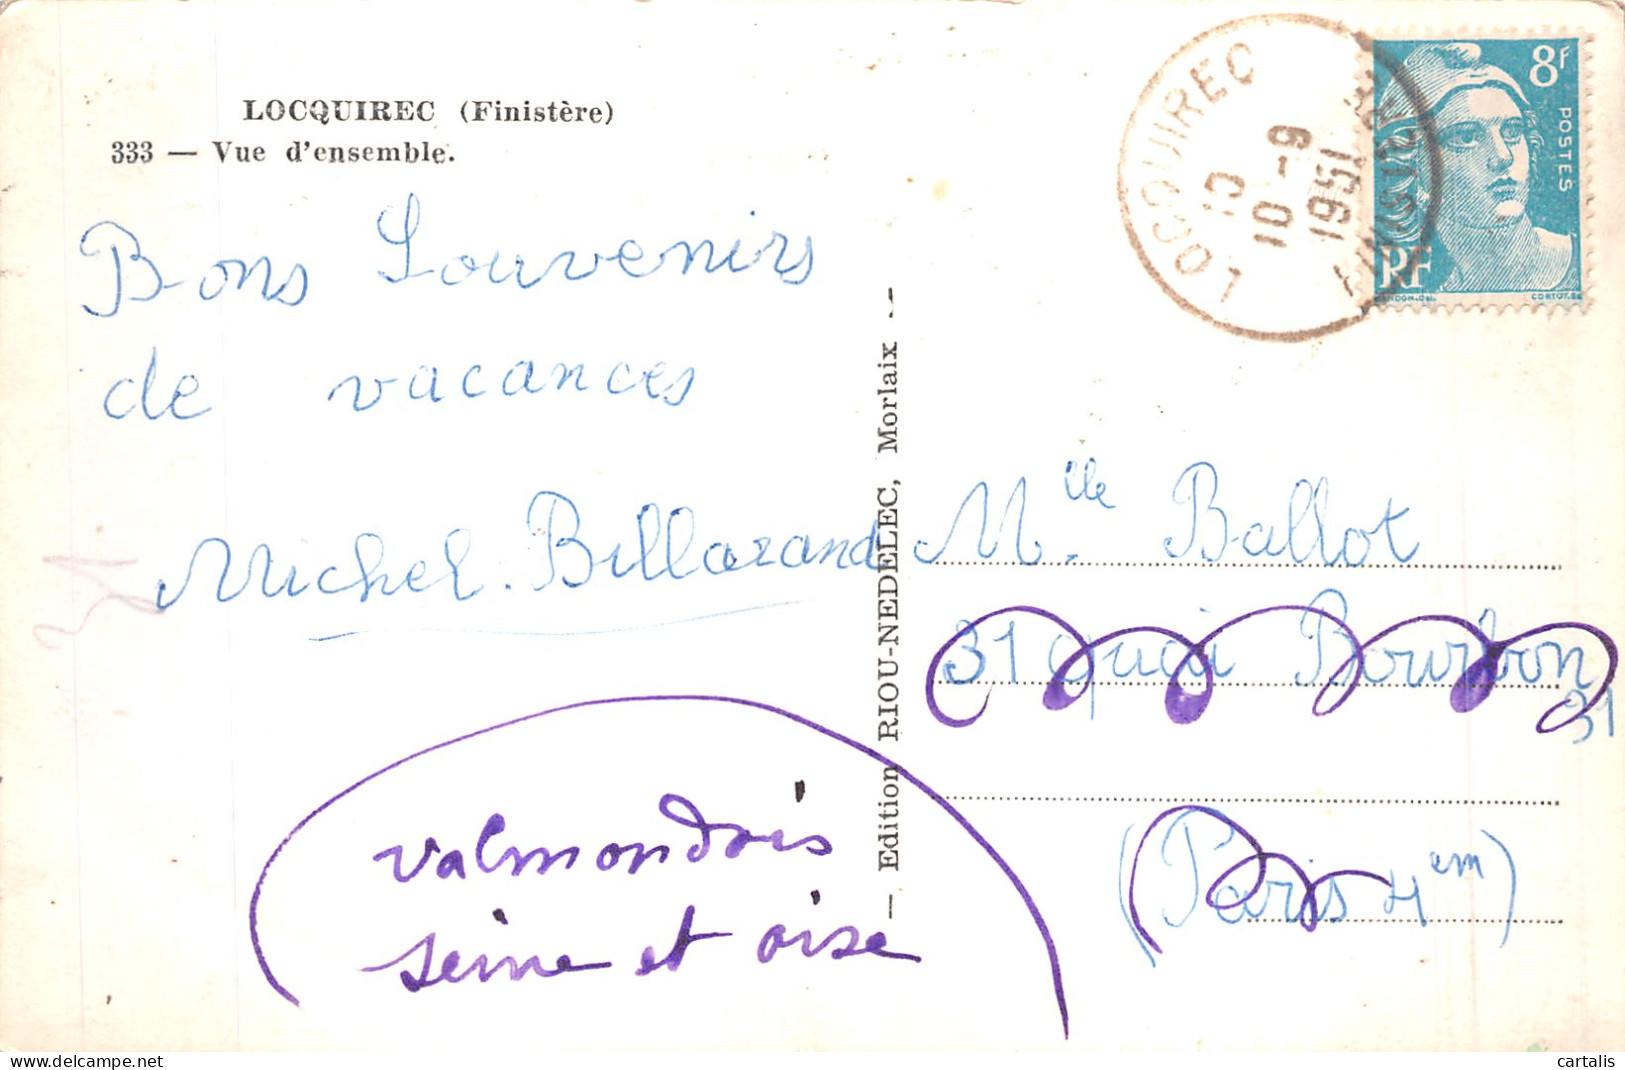 LOCQUIREC (Finistère)
333 — Vue d'ensemble.
Bons Souvenirs
de vacances
Michel. Billarand
valmondois
seine et oise
— Edition RIOU-NEDELEC, Morlaix —
LOCQUIREC
10
10 - 9
1951
FINISTÈRE
8F
POSTES
RF
GANDON.Del.
CORTOT.Sc
Mlle Ballot
31 quai Bourbon
31
(Paris 4em)
cartalis